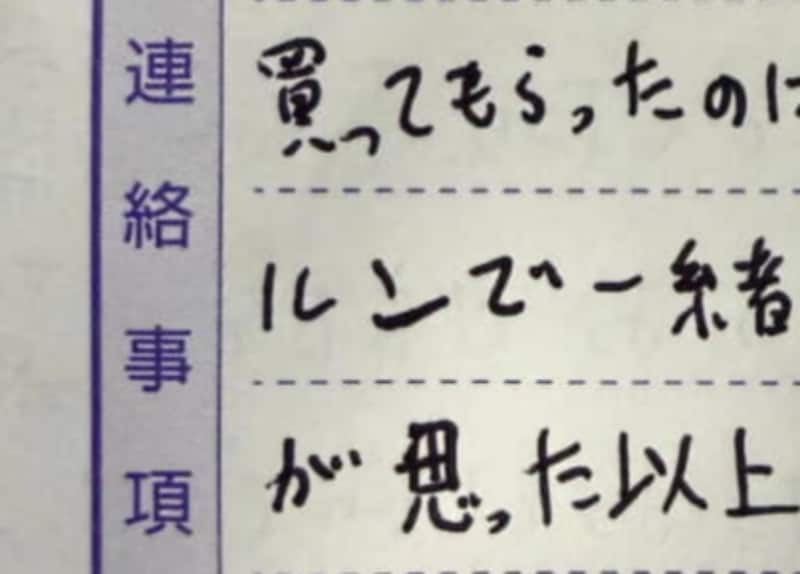 連絡事項
買ってもらったのは
ルンで一緒
が思った以上